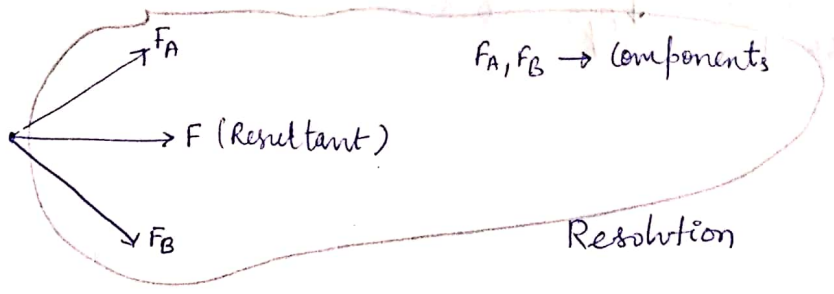 FA
FA, FB → Components
F (Resultant)
FB
Resolution